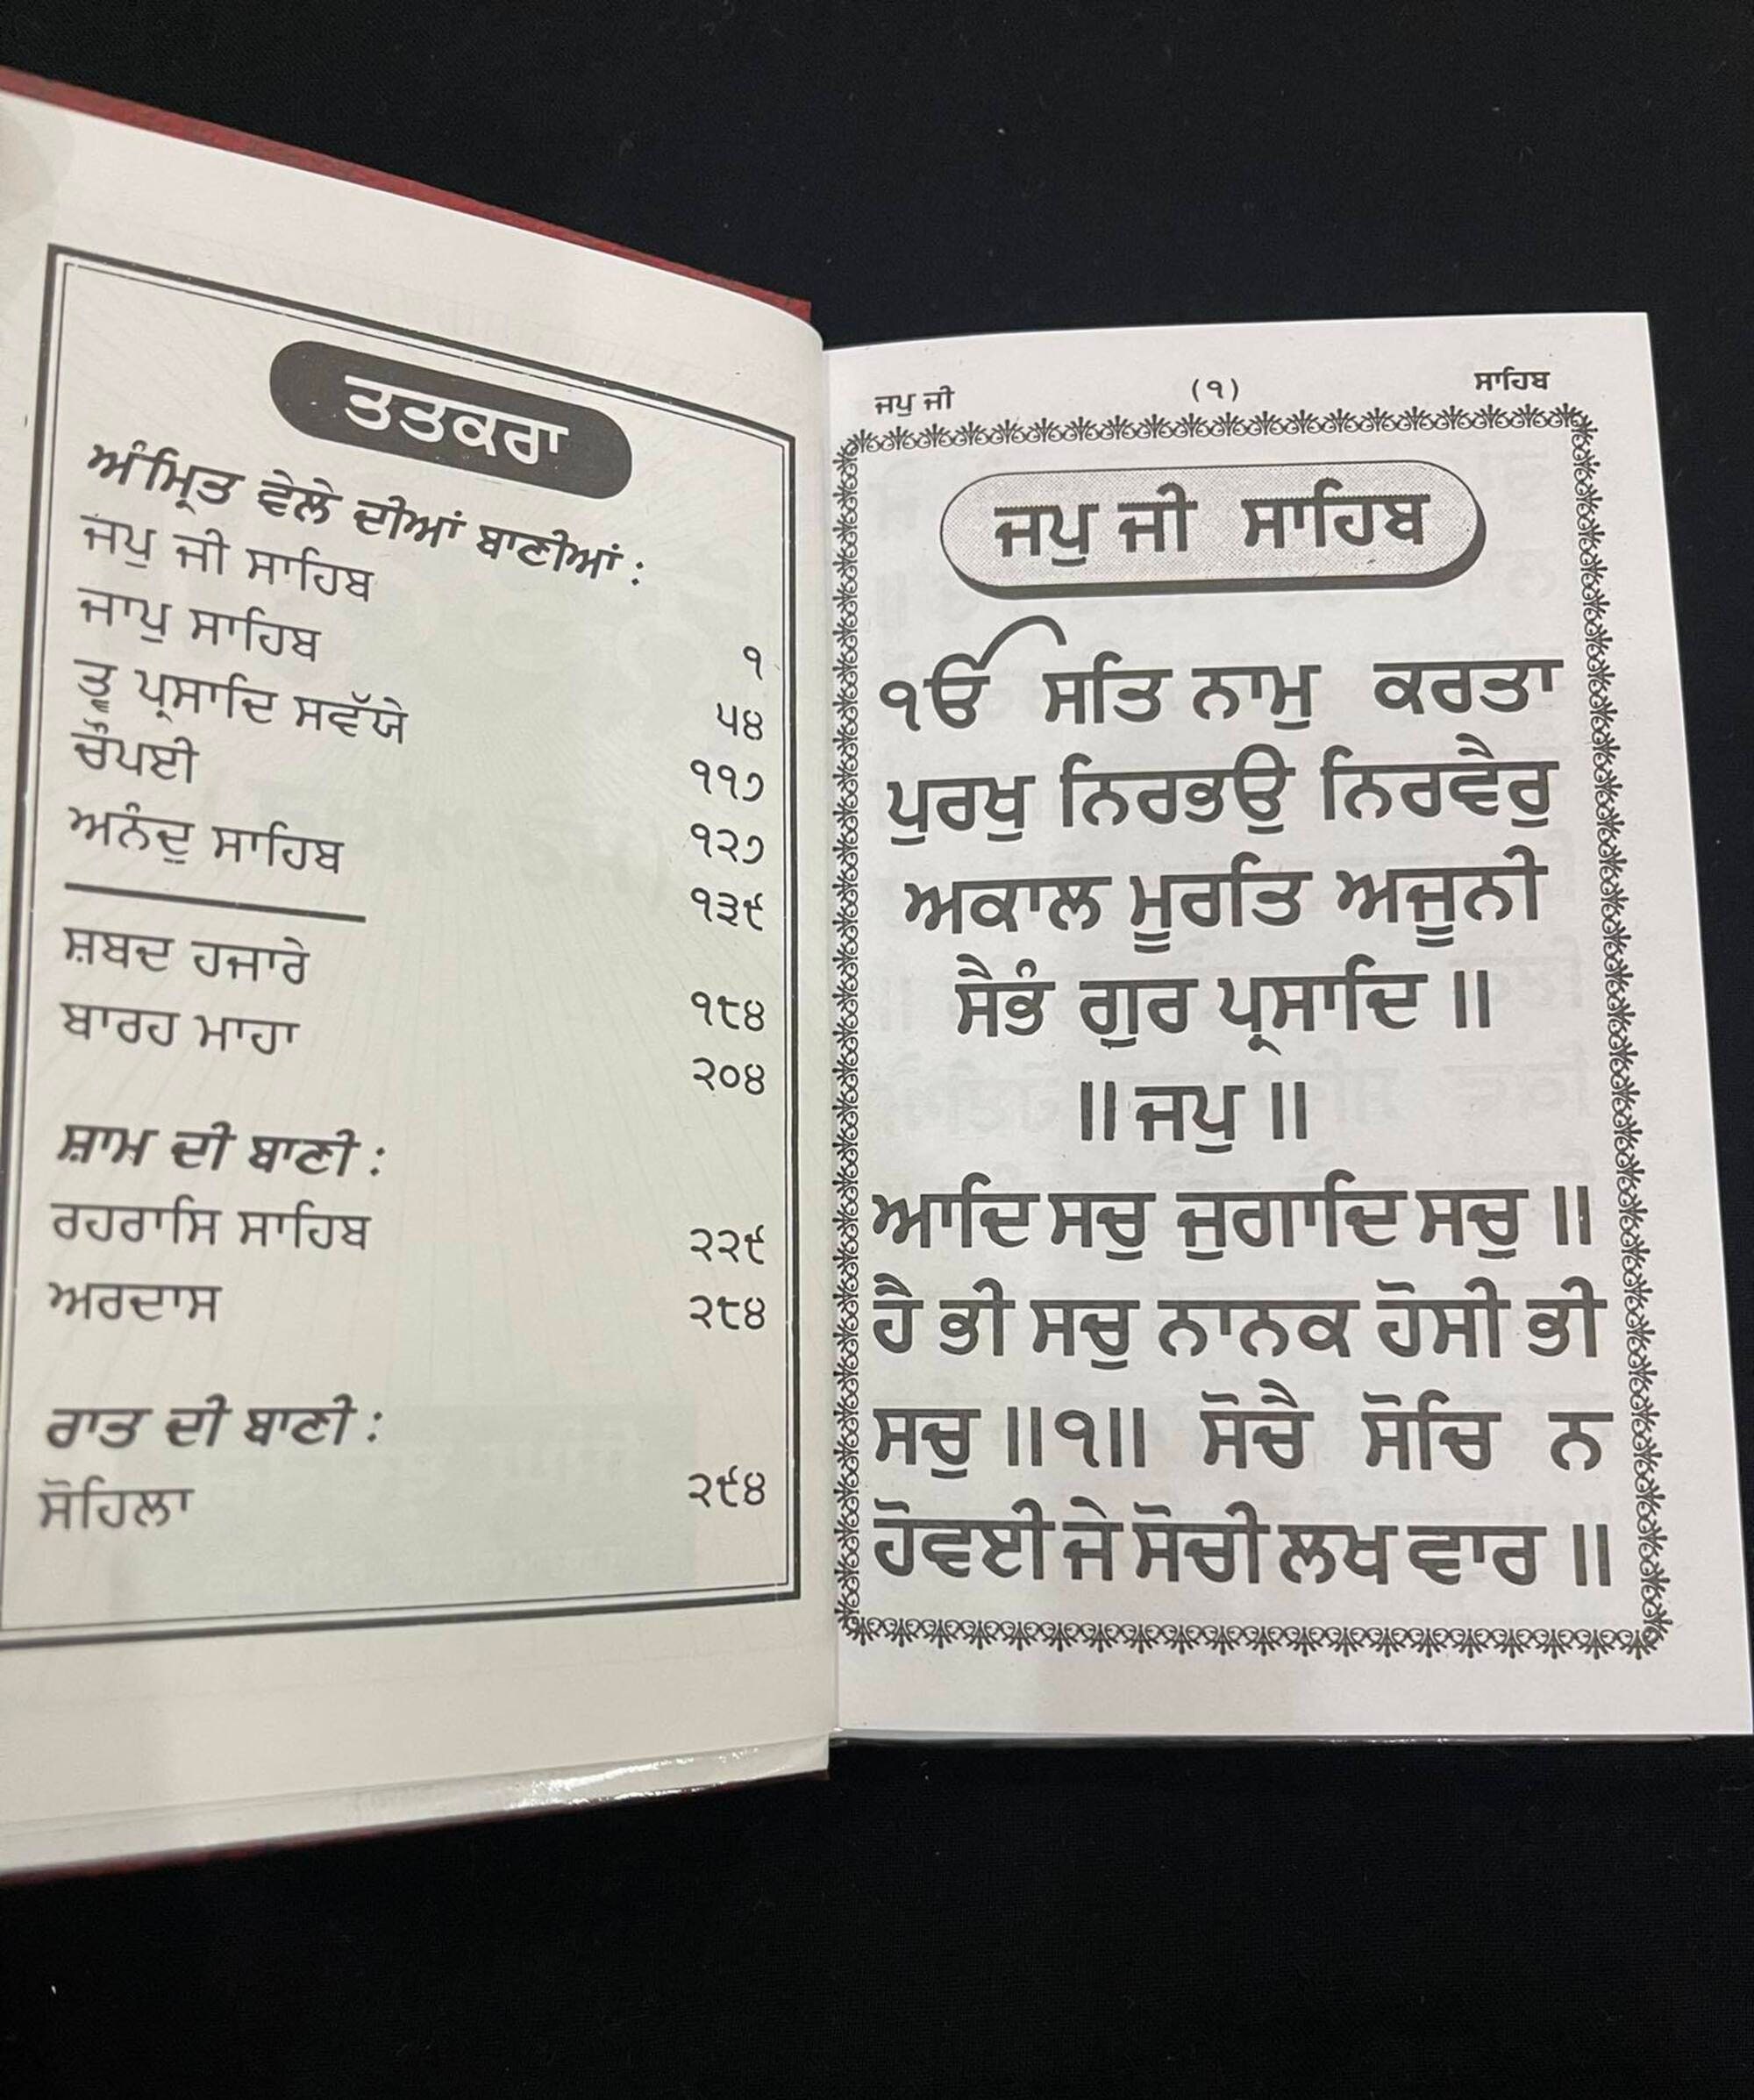 ਤਤਕਰਾ
ਅੰਮ੍ਰਿਤ ਵੇਲੇ ਦੀਆਂ ਬਾਣੀਆਂ :
ਜਪੁ ਜੀ ਸਾਹਿਬ ੧
ਜਾਪੁ ਸਾਹਿਬ ੫੪
ਤ੍ਵ ਪ੍ਰਸਾਦਿ ਸਵੱਯੇ ੧੧੭
ਚੌਪਈ ੧੨੭
ਅਨੰਦੁ ਸਾਹਿਬ ੧੩੯
ਸ਼ਬਦ ਹਜਾਰੇ ੧੮੪
ਬਾਰਹ ਮਾਹਾ ੨੦੪
ਸ਼ਾਮ ਦੀ ਬਾਣੀ :
ਰਹਰਾਸਿ ਸਾਹਿਬ ੨੨੯
ਅਰਦਾਸ ੨੮੪
ਰਾਤ ਦੀ ਬਾਣੀ :
ਸੋਹਿਲਾ ੨੯੪
ਜਪੁ ਜੀ (੧) ਸਾਹਿਬ
ਜਪੁ ਜੀ ਸਾਹਿਬ
ੴ ਸਤਿ ਨਾਮੁ ਕਰਤਾ
ਪੁਰਖੁ ਨਿਰਭਉ ਨਿਰਵੈਰੁ
ਅਕਾਲ ਮੂਰਤਿ ਅਜੂਨੀ
ਸੈਭੰ ਗੁਰ ਪ੍ਰਸਾਦਿ ॥
॥ ਜਪੁ ॥
ਆਦਿ ਸਚੁ ਜੁਗਾਦਿ ਸਚੁ ॥
ਹੈ ਭੀ ਸਚੁ ਨਾਨਕ ਹੋਸੀ ਭੀ
ਸਚੁ ॥੧॥ ਸੋਚੈ ਸੋਚਿ ਨ
ਹੋਵਈ ਜੇ ਸੋਚੀ ਲਖ ਵਾਰ ॥